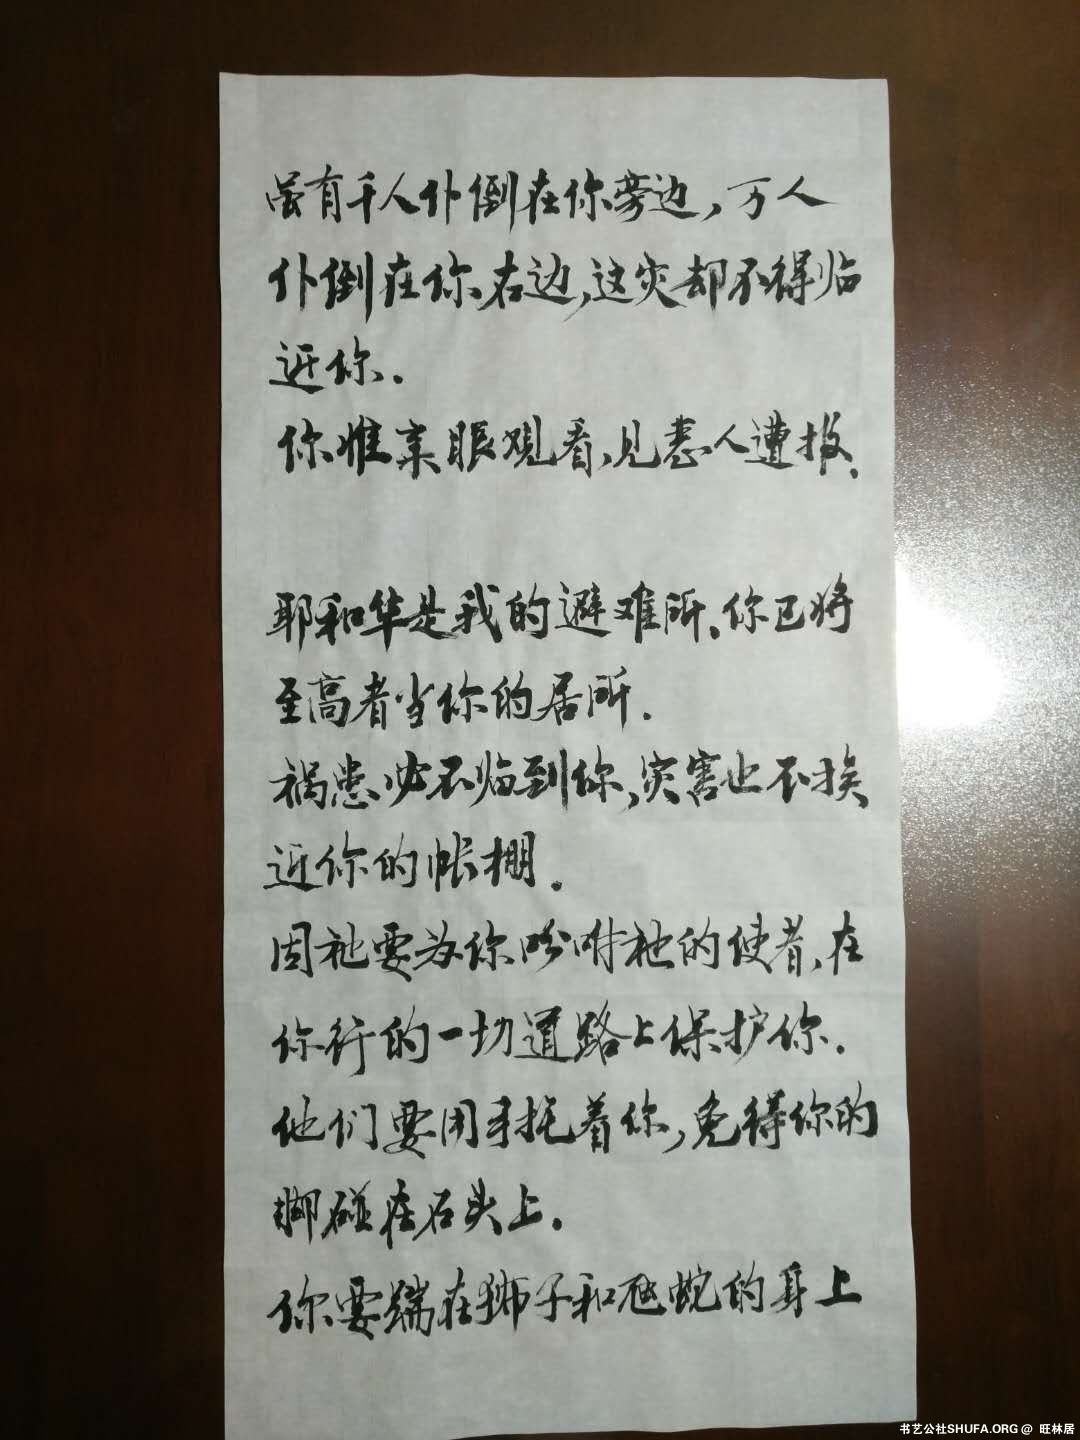 虽有千人仆倒在你旁边，万人
仆倒在你右边，这灾却不得临
近你.
你惟亲眼观看，见恶人遭报.
耶和华是我的避难所.你已将
至高者当你的居所.
祸患必不临到你，灾害也不挨
近你的帐棚.
因祂要为你吩咐祂的使者，在
你行的一切道路上保护你.
他们要用手托着你，免得你的
脚碰在石头上.
你要踹在狮子和虺蛇的身上
书艺公社SHUFA.ORG@ 旺林居